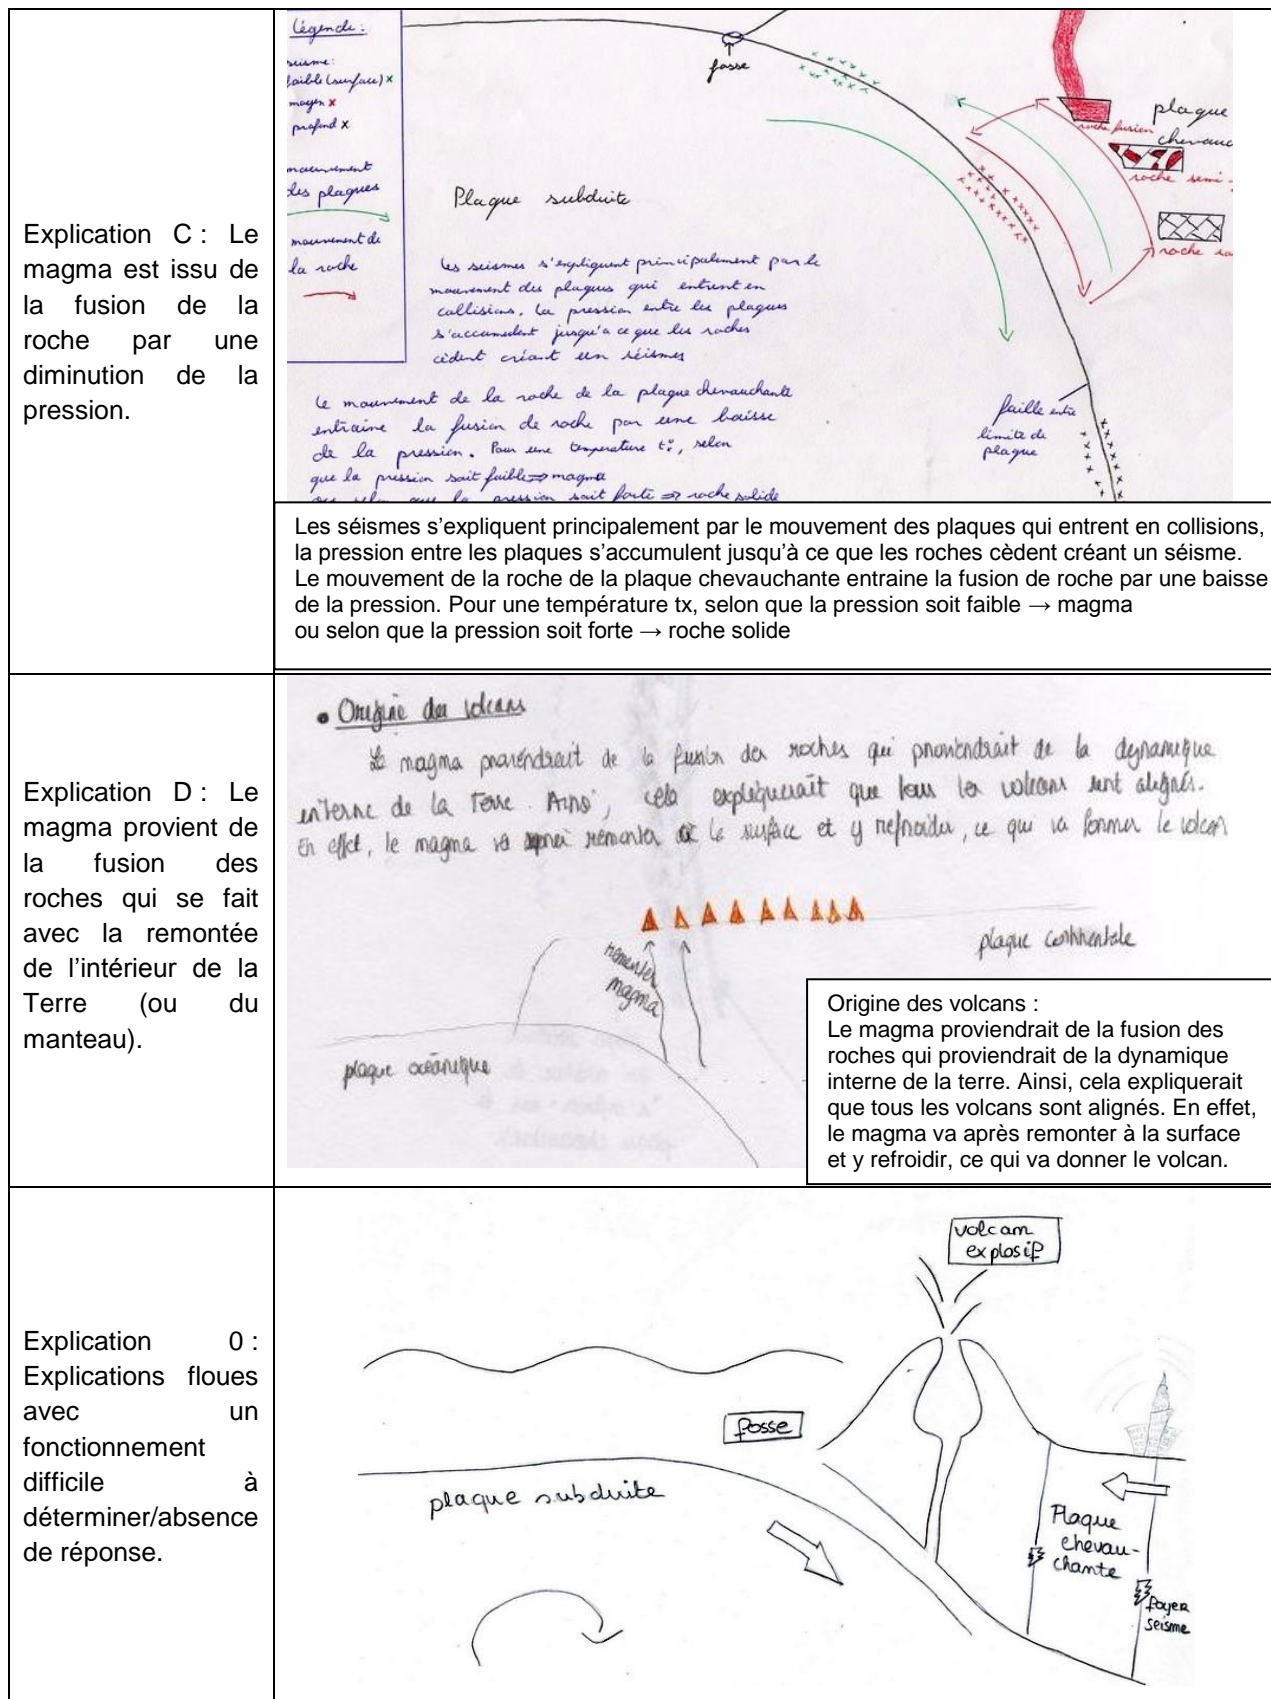 Explication C : Le
magma est issu de
la fusion de la
roche par une
diminution de la
pression.
Légende :
seisme :
faible (surface) x
moyen x
profond x
mouvement
des plaques
mouvement de
la roche
fosse
Plaque subduite
plaque
chevauc
roche fusion
roche semi-
roche
les seismes s'expliquent principalement par le
mouvement des plaques qui entrent en
collisions, la pression entre les plaques
s'accumulent jusqu'a ce que les roches
cèdent créant un séismes
le mouvement de la roche de la plaque chevauchante
entraine la fusion de roche par une baisse
de la pression. Pour une temperature t°, selon
que la pression soit faible ⇒ magma
ou selon que la pression soit forte ⇒ roche solide
faille entre
limite de
plaque
Les séismes s’expliquent principalement par le mouvement des plaques qui entrent en collisions,
la pression entre les plaques s’accumulent jusqu’à ce que les roches cèdent créant un séisme.
Le mouvement de la roche de la plaque chevauchante entraine la fusion de roche par une baisse
de la pression. Pour une température tx, selon que la pression soit faible → magma
ou selon que la pression soit forte → roche solide
Explication D : Le
magma provient de
la fusion des
roches qui se fait
avec la remontée
de l’intérieur de la
Terre (ou du
manteau).
• Origine des volcans
Le magma proviendrait de la fusion des roches qui proviendrait de la dynamique
interne de la Terre. Ainsi, cela expliquerait que tous les volcans sont alignés.
En effet, le magma va après remonter à la surface et y refroidir, ce qui va former le volcan
remonter
magma
plaque continentale
plaque océanique
Origine des volcans :
Le magma proviendrait de la fusion des
roches qui proviendrait de la dynamique
interne de la terre. Ainsi, cela expliquerait
que tous les volcans sont alignés. En effet,
le magma va après remonter à la surface
et y refroidir, ce qui va donner le volcan.
Explication 0 :
Explications floues
avec un
fonctionnement
difficile à
déterminer/absence
de réponse.
volcan
explosif
fosse
plaque subduite
Plaque
chevau-
chante
foyer
seisme